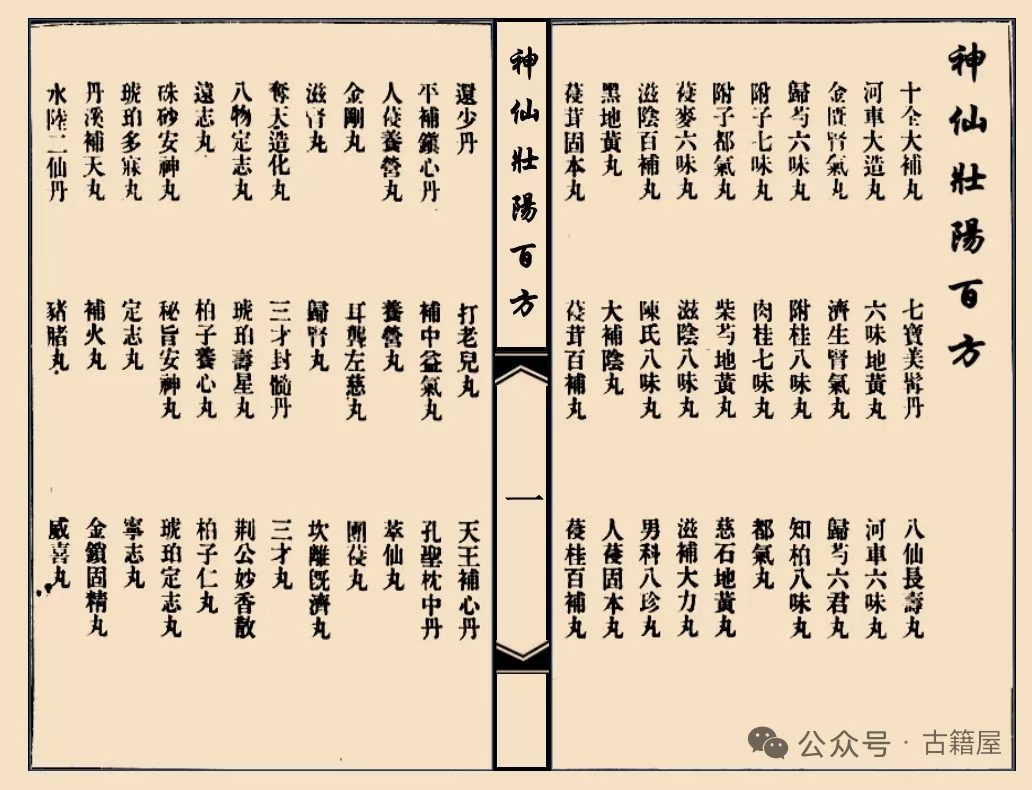 神仙壯陽百方
十全大補丸 七寶美髯丹 八仙長壽丸
河車大造丸 六味地黃丸 河車六味丸
金匱腎氣丸 濟生腎氣丸 歸芍六君丸
歸芍六味丸 附桂八味丸 知柏八味丸
附子七味丸 肉桂七味丸 都氣丸
附子都氣丸 柴芍地黃丸 慈石地黃丸
葠麥六味丸 滋陰八味丸 滋補大力丸
滋陰百補丸 陳氏八味丸 男科八珍丸
黑地黃丸 大補陰丸 人葠固本丸
葠茸固本丸 葠茸百補丸 葠桂百補丸
神仙壯陽百方
一
還少丹 打老兒丸 天王補心丹
平補鎭心丹 補中益氣丸 孔聖枕中丹
人葠養營丸 養營丸 萃仙丸
金剛丸 耳聾左慈丸 團葠丸
滋腎丸 歸腎丸 坎離旣濟丸
奪天造化丸 三才封髓丹 三才丸
八物定志丸 琥珀壽星丸 荆公妙香散
遠志丸 柏子養心丸 柏子仁丸
硃砂安神丸 秘旨安神丸 琥珀定志丸
琥珀多寐丸 定志丸 寧志丸
丹溪補天丸 補火丸 金鎖固精丸
水陸二仙丹 豬賭丸 威喜丸
公众号 · 古籍屋